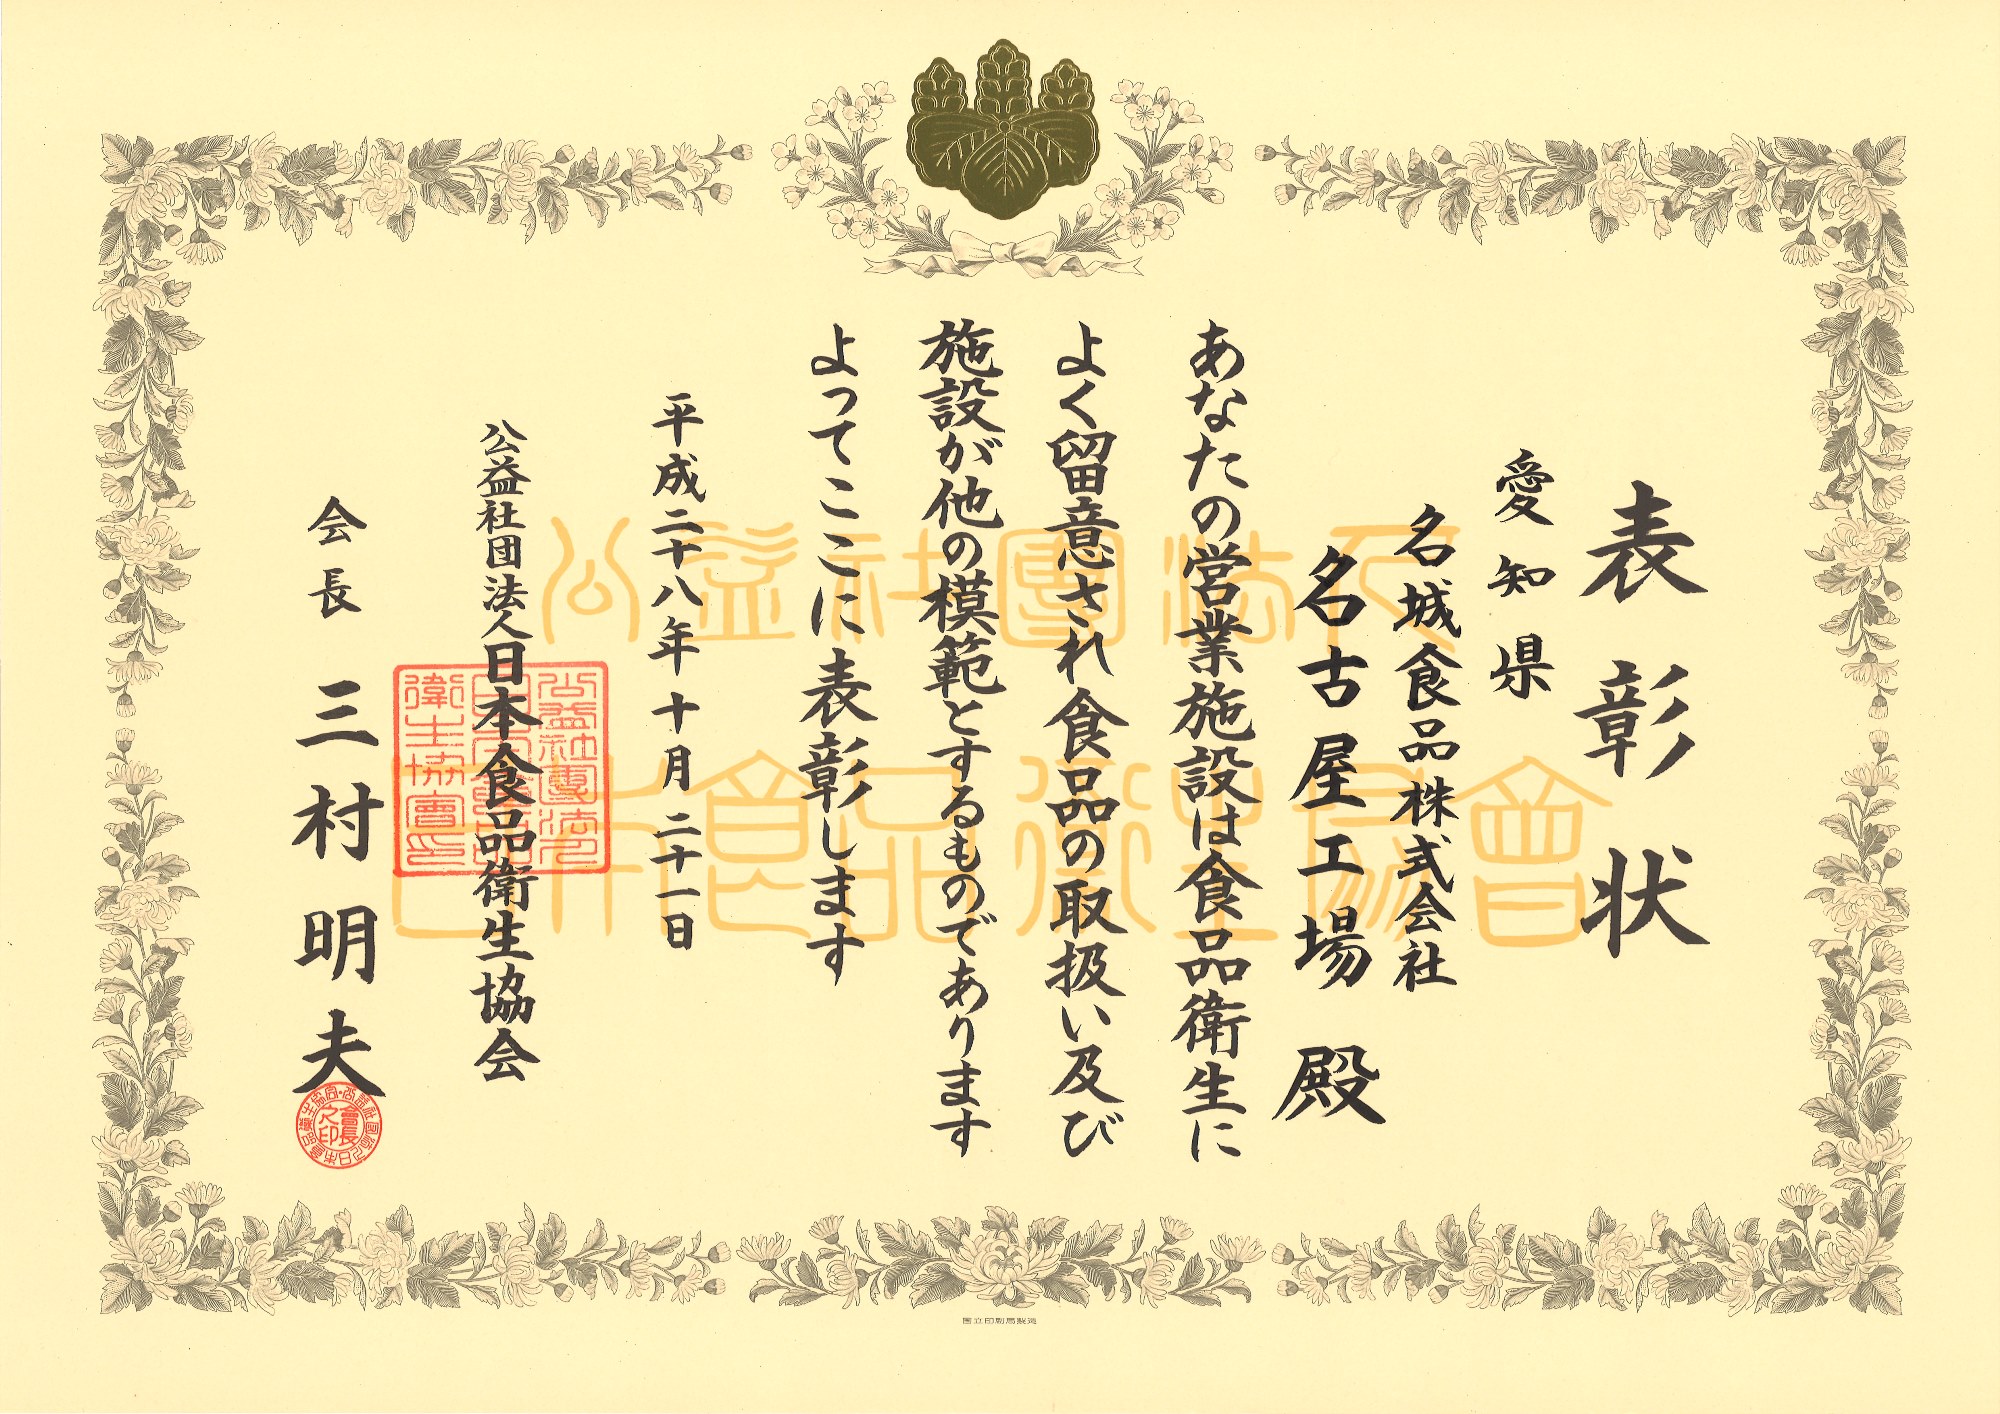 表彰状
愛知県
名城食品株式会社
名古屋工場殿
あなたの営業施設は食品衛生に
よく留意され食品の取扱い及び
施設が他の模範とするものであります
よってここに表彰します
平成二十八年十月二十一日
公益社団法人日本食品衛生協会
会長 三村明夫
公益社團法人
日本食品衛生協會
公益社團法人日本食品衛生協會印
會長之印
国立印刷局製造